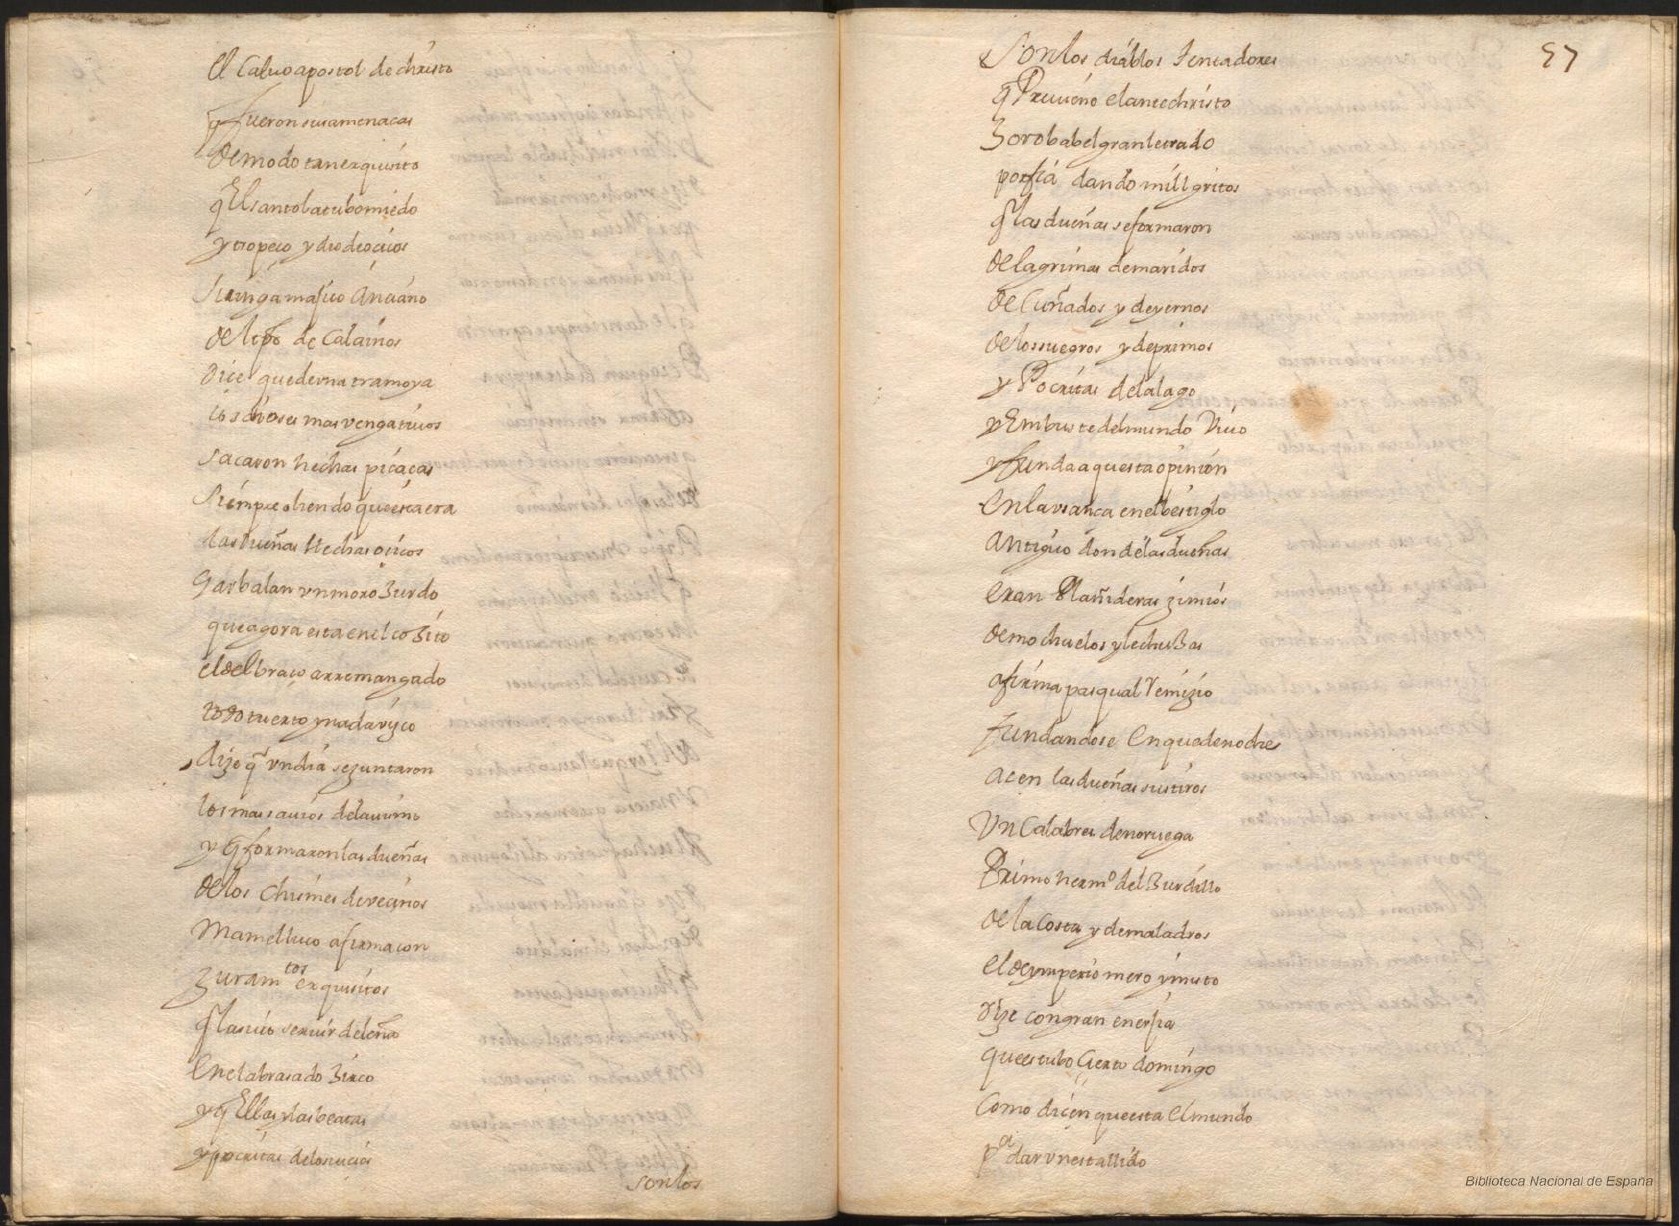 El Caluo apostol de christo
q̃ fueron sus amenaças
de modo tan exquisito
q̃ El santo la tubo miedo
y tropeço y dio de ocicos
Siringa mafico Anciano
del tpõ de Calaínos
dice que de vna tramoya
los dioses mas vengatiuos
sacaron hechas picaças
siempre oliendo que era
las dueñas hechas ocicos
Garbalan vn moro Zurdo
que agora esta en el coZito
el del braço arremangado
todo tuerto y nadarizco
dize q̃ vn dia sejuntaron
los mas sauios del auismo
y q̃ formaron las dueñas
de los chismes de veçinos
Mamelluco afirma con
Zuramtos exquisitos
q̃ las uio seruir de leña
En el abrasado Zirco
y q̃ Ellas y las beatas
ypocritas de lo sucio
son los
Son los diablos tentadores
q̃ Preuieno el antechristo
Zorobabel gran letrado
porfia dando mill gritos
q̃ las dueñas se formaron
de lagrimas de maridos
de Cuñados y de yernos
de los suegros y de primos
y Pocritas del alago
y Embuste del mundo Viuo
y funda aquesta opinion
En la vsança en el besiglo
Antiguo donde las dueñas
Eran Plañideras zimios
de mochuelos y lechuZas
afirma pasqual Vemizio
fundandose En que de noche
acen las dueñas sus tiros
Vn Calabres de noruega
Primo hermo del Zurdillo
de la Costa y de maladros
el de ymperio mero y misto
dize con gran enerfia
que estubo Cierto domingo
Como dicen que esta El mundo
pa dar vn estallido
57
Biblioteca Nacional de España